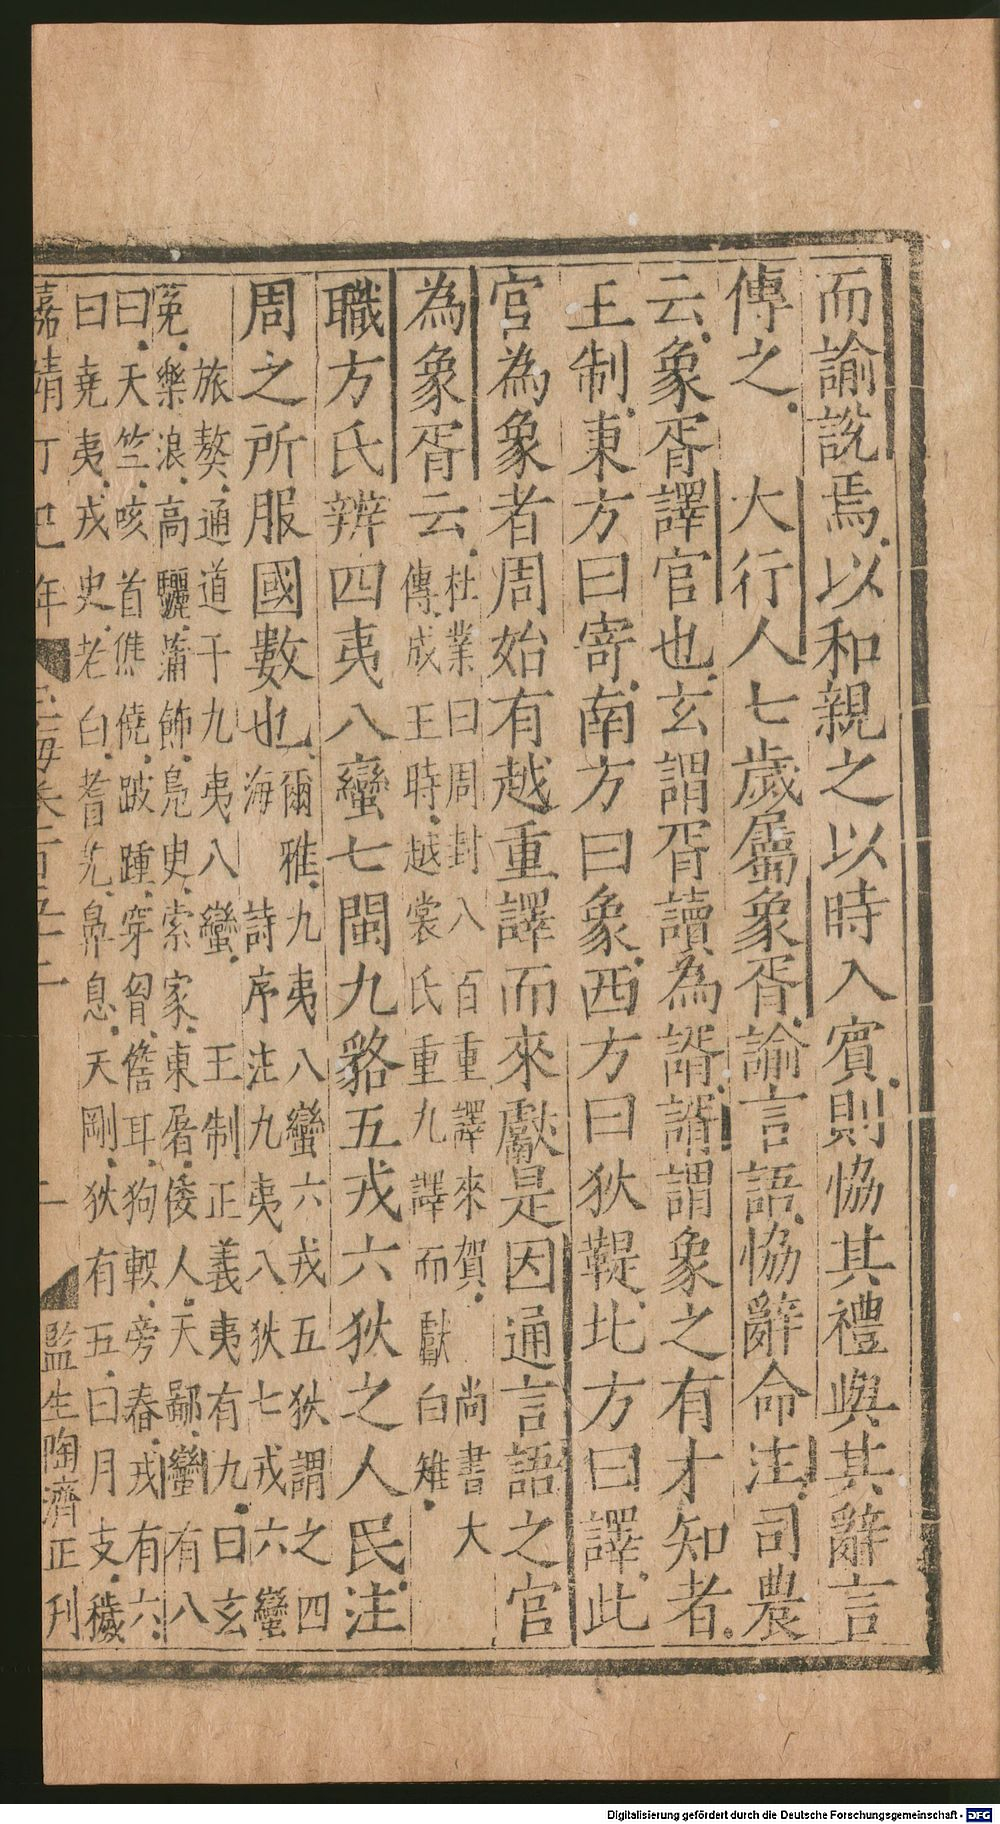 而諭説焉以和親之以時入賓則恊其禮與其辭言
傳之　大行人七歲屬象胥諭言語恊辭命注司農
云象胥譯官也玄謂胥讀為諝諝謂象之有才知者
王制東方曰寄南方曰象西方曰狄鞮北方曰譯此
官為象者周始有越重譯而來獻是因通言語之官
為象胥云
杜業曰周封八百重譯來賀　尚書大
傳成王時越裳氏重九譯而獻白雉
職方氏辨四夷八蠻七閩九貉五戎六狄之人民注
周之所服國數也
爾雅九夷八蠻六戎五狄謂之四
海　詩序注九夷八狄七戎六蠻
旅獒通道于九夷八蠻　王制正義夷有九曰玄
菟樂浪高驪蒲飾鳧臾索家東屠倭人天鄙蠻有八
曰天竺咳首僬僥跛踵穿胷儋耳狗軹旁春戎有六
曰堯夷戎史老白耆羌鼻息天剛狄有五曰月支穢
嘉靖丁巳年　玉海卷一百五十二　二　監生陶濟正刋
Digitalisierung gefördert durch die Deutsche Forschungsgemeinschaft - DFG